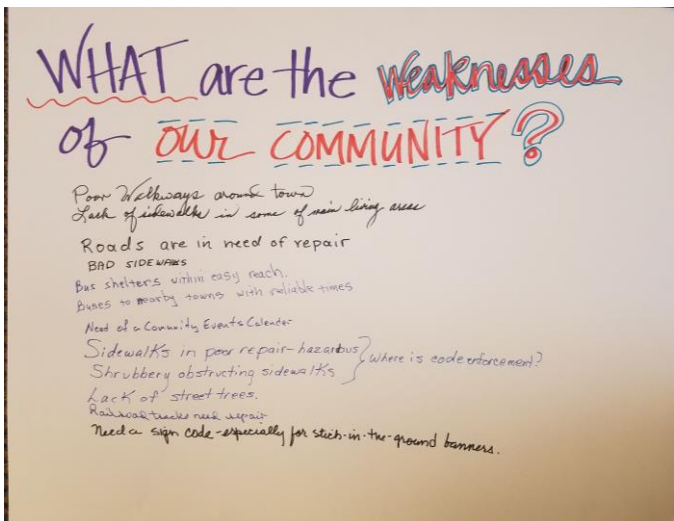 WHAT are the Weaknesses
of our COMMUNITY?
Poor Walkways around town
Lack of sidewalks in some of main living areas
Roads are in need of repair
BAD SIDEWALKS
Bus shelters within easy reach.
Buses to nearby towns with reliable times
Need of a Community Events Calender
Sidewalks in poor repair-hazardous } Where is code enforcement?
Shrubbery obstructing sidewalks
Lack of street trees.
Railroad tracks need repair
Need a sign code - especially for stick-in-the-ground banners.